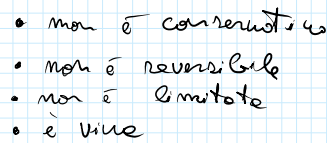 • non è conservativo
• non è reversibile
• non è limitata
• è viva